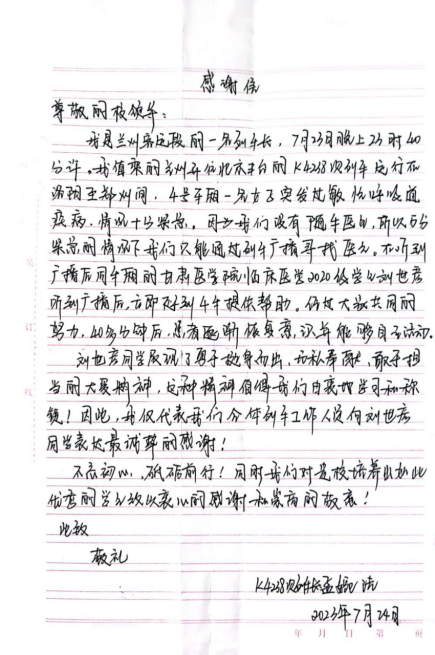 感谢信
尊敬的校领导：
我是兰州客运段的一名列车长，7月23日晚上23时40
分许。我值乘的兰州开往北京丰台的K4258次列车运行在
洛阳至郑州间，4号车厢一名女子突发过敏性呼吸道
疾病，情况十分紧急。因为我们没有随车医生，所以在
紧急的情况下我们只能通过列车广播寻找医生。在听到
广播后同车厢的甘肃医学院临床医学2020级学生刘也齐
听到广播后，立即赶到4车提供帮助。经过大家共同的
努力，40多分钟后，患者逐渐恢复意识并能够自主活动。
刘也齐同学展现了勇于挺身而出，无私奉献，敢于担
当的大爱精神，这种精神值得我们由衷地学习和称
赞！因此，我仅代表我们全体列车工作人员向刘也齐
同学表达最诚挚的感谢！
不忘初心，砥砺前行！同时我们对贵校培养出如此
优秀的学生致以衷心的感谢和崇高的敬意！
此致
敬礼
K4258次列车长孟
2023年7月24日
年 月 日 第 页
装
订
线